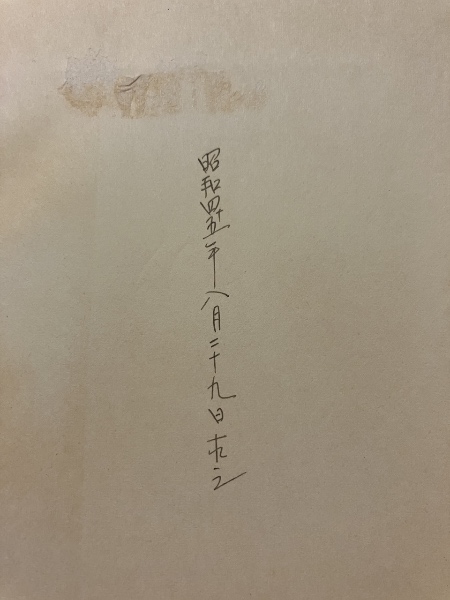 昭和四十五年八月二十九日求之